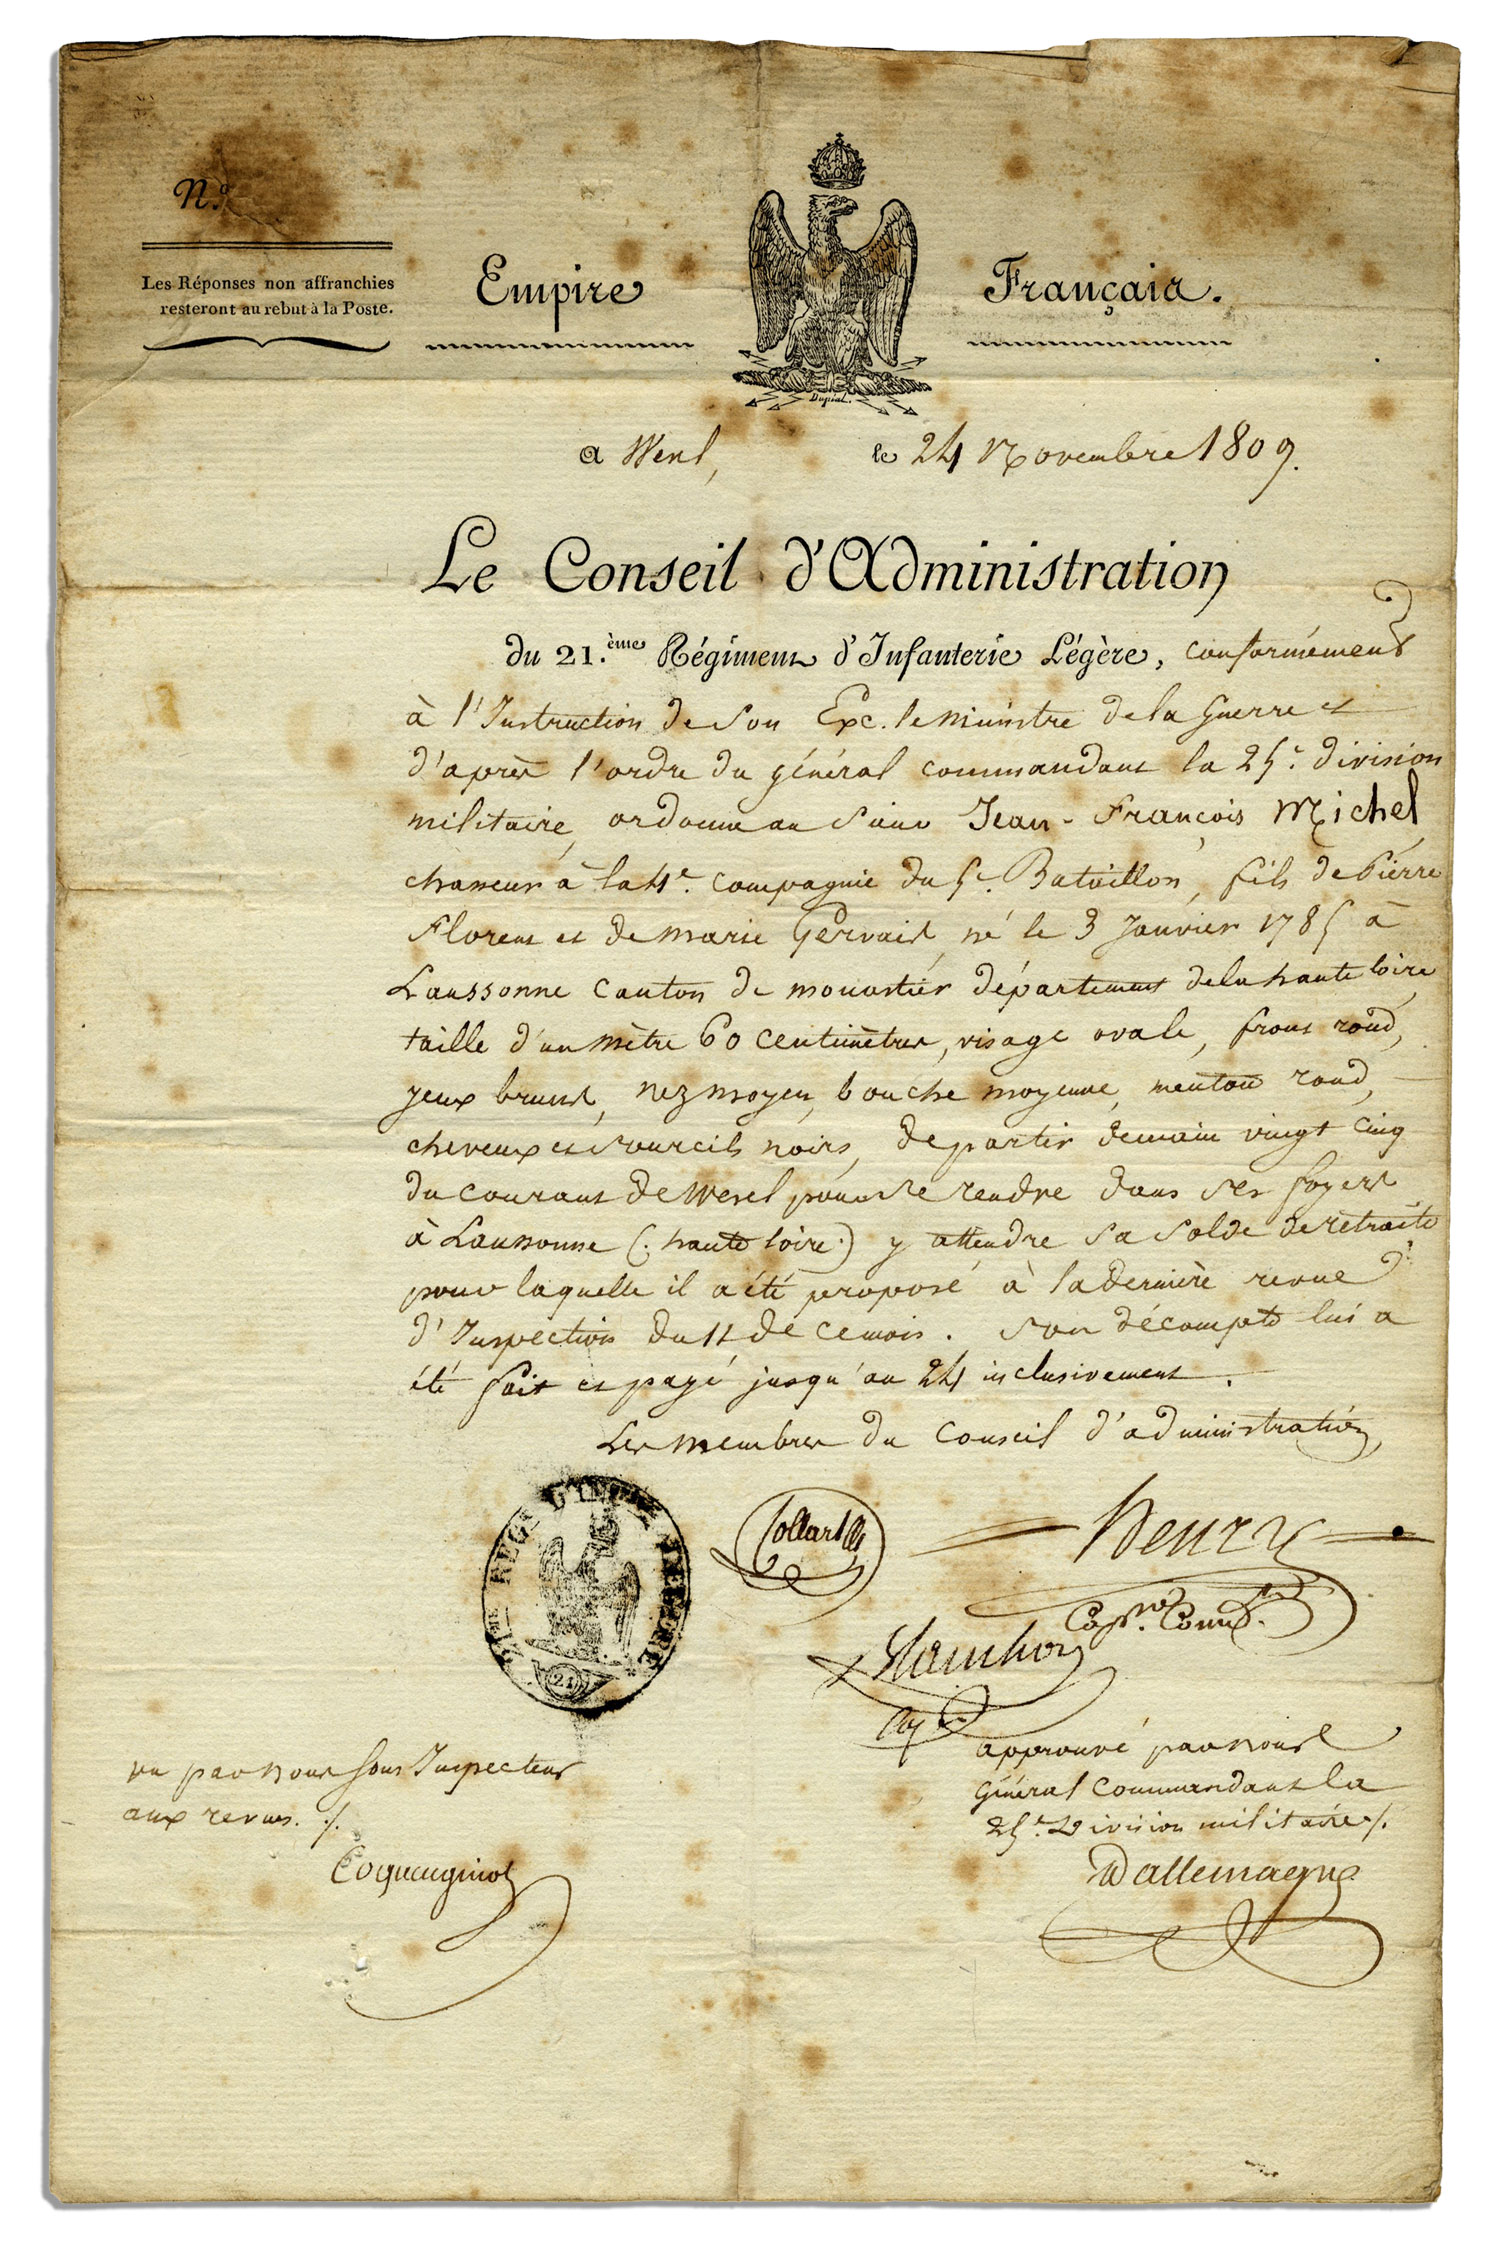 N.º
Les Réponses non affranchies
resteront au rebut à la Poste.
Empire Français.
Dupéat.
a Wesel, le 24 Novembre 1809.
Le Conseil d'Administration
du 21.ème Régiment d'Infanterie Légère, conformément
à l'Instruction de Son Exc. le Ministre de la Guerre et
d'après l'ordre du général commandant la 25.e division
militaire, ordonne au Sieur Jean-François Michel,
chasseur à la 4.e compagnie du 5.e Bataillon, fils de Pierre
Florent et de Marie Gervais, né le 3 Janvier 1785 à
Laussonne Canton de monastier, département de la haute loire,
taille d'un mètre 60 centimètres, visage ovale, front rond,
yeux bruns, nez moyen, bouche moyenne, menton rond,
cheveux et sourcils noirs, de partir demain vingt cinq
du courant de Wesel pour se rendre dans ses foyers
à Laussonne (: haute loire :) y attendre sa solde de retraite
pour laquelle il a été proposé à la dernière revue
d'Inspection du 11 de ce mois. Son décompte lui a
été fait et payé jusqu'au 24 inclusivement.
Les membres du Conseil d'administration,
21.ME REG.T D'INF.IE LEGERE
21
Collart
Henry
Cap.ne Comm.dt
vu par nous Sous Inspecteur
aux revues. ./.
Coqueugniot
approuvé par nous
Général Commandant la
25.e Division militaire ./.
Dallemagne